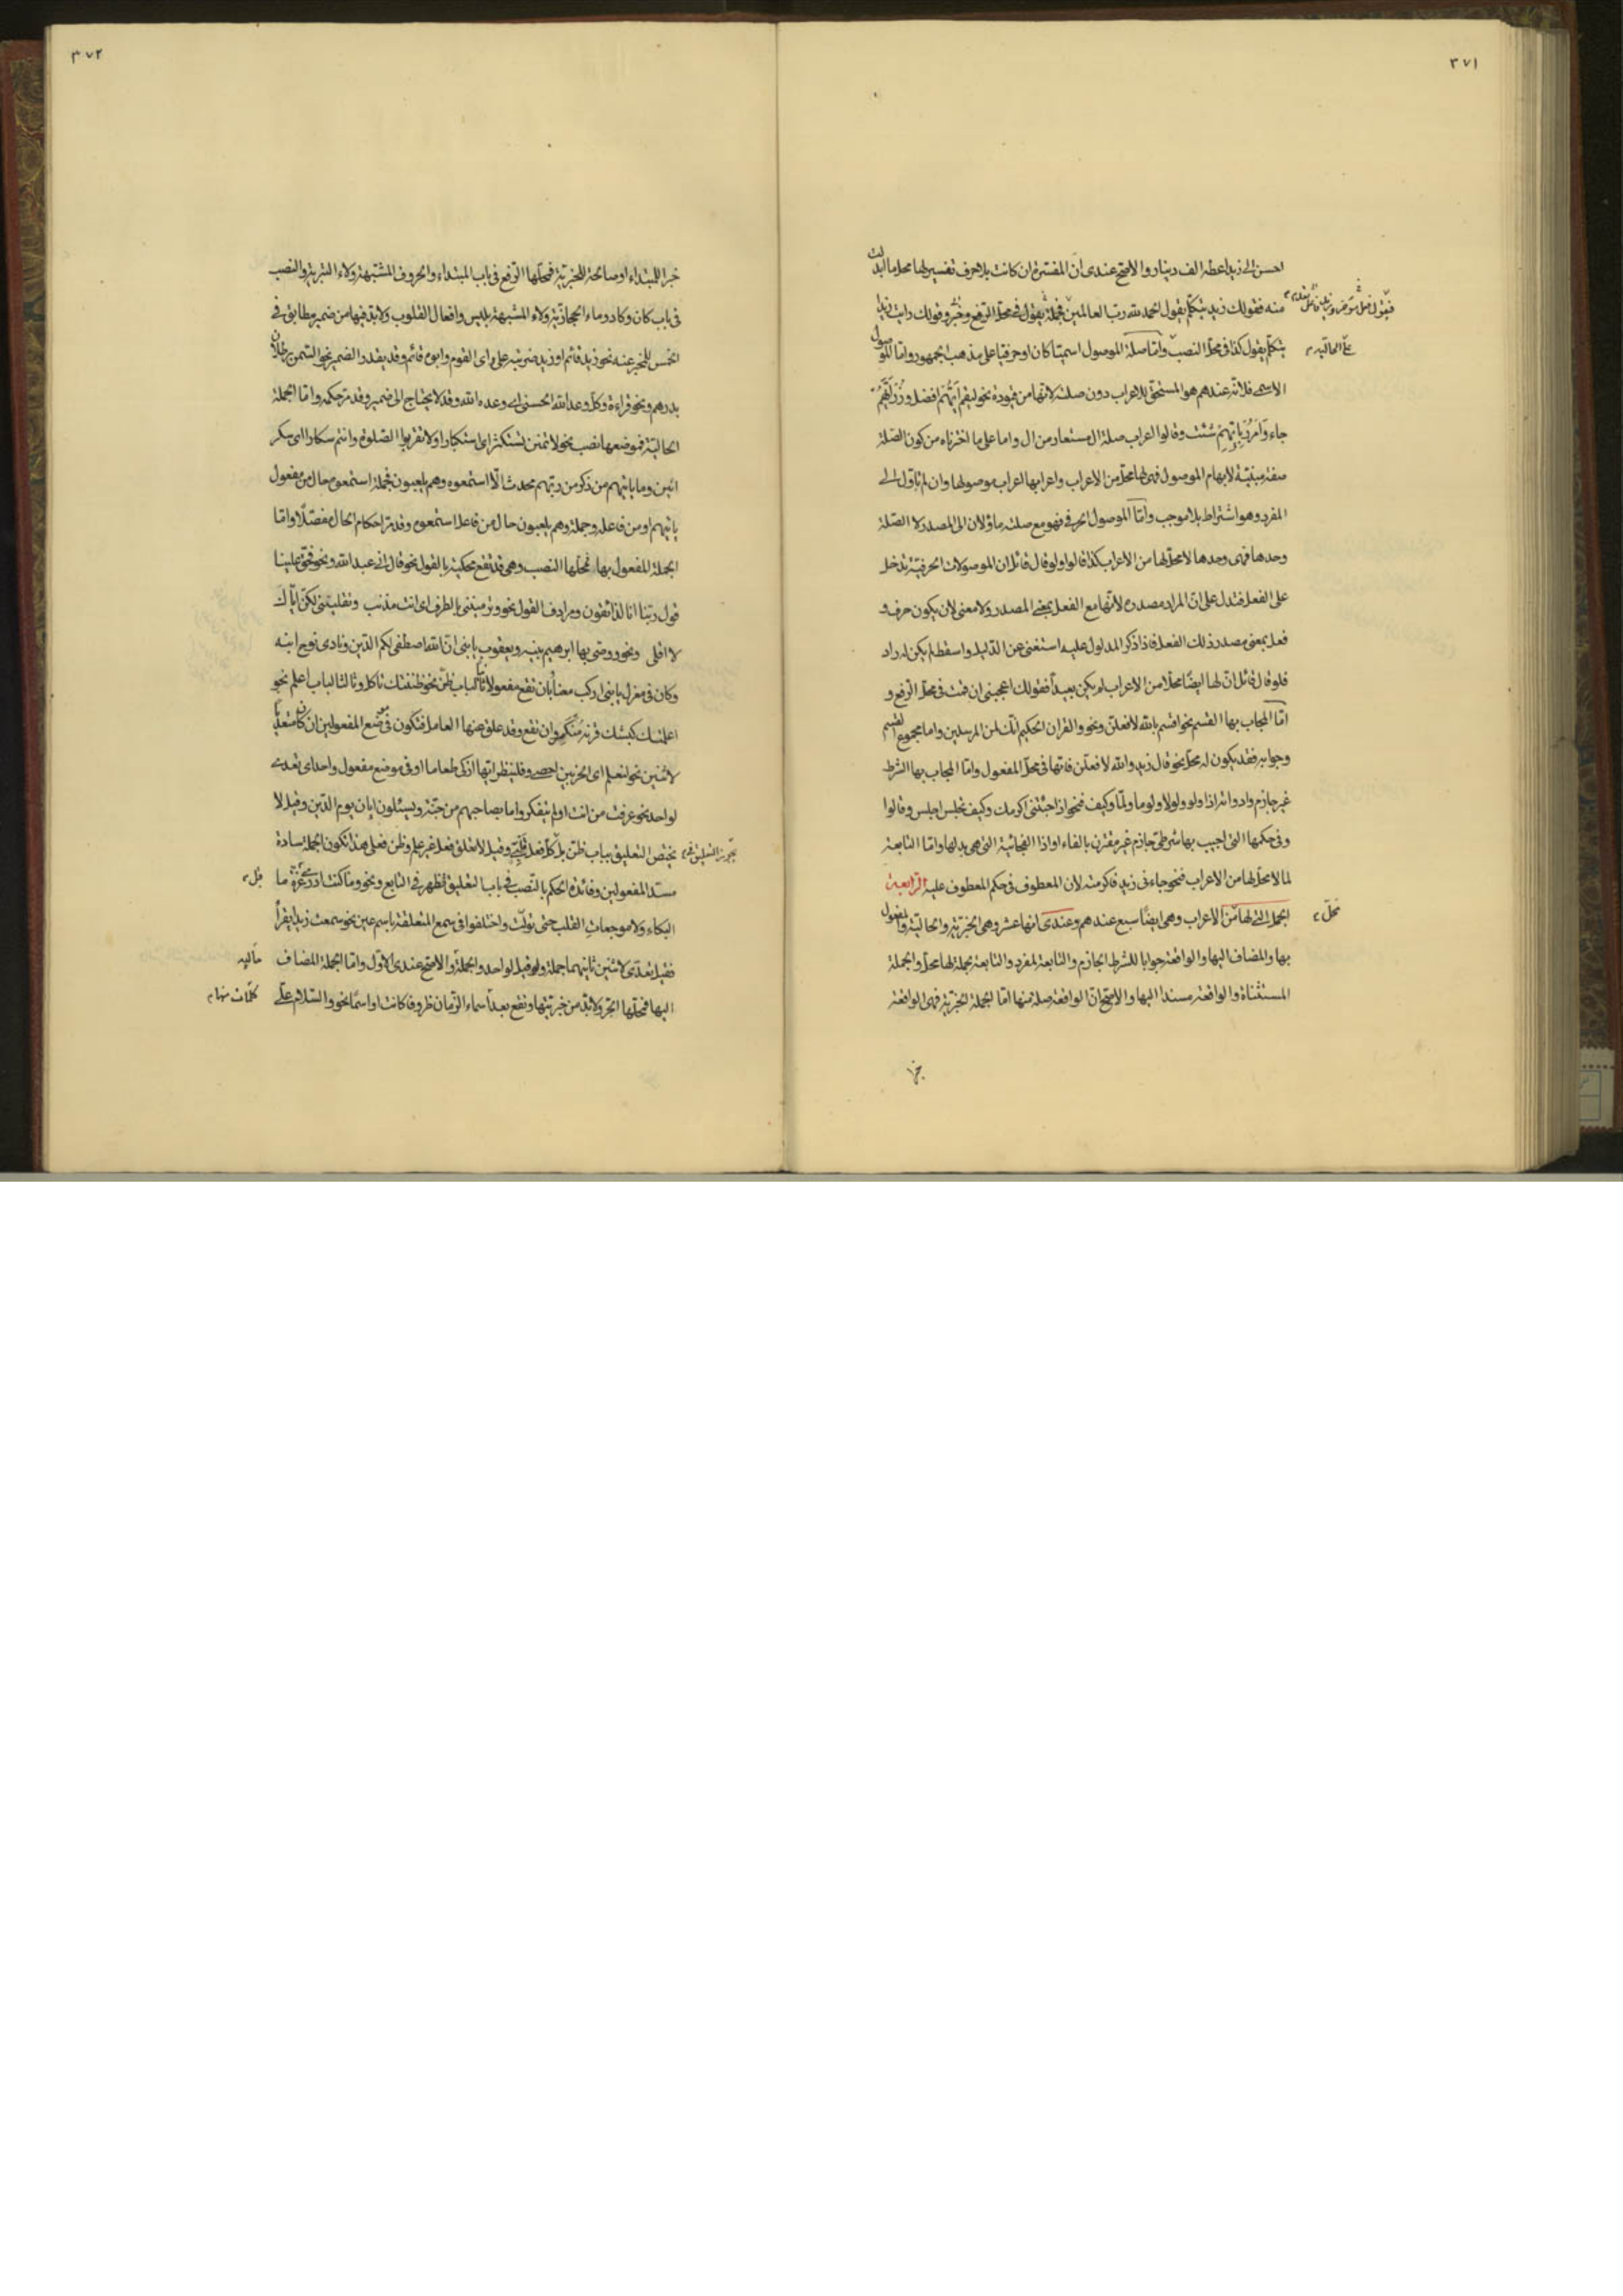 ٣٧١
احسن الى زيد اعطه الف دينار والاصح عندى ان المفسرة ان كانت بلا حرف تفسير لها محل ما ابدلت
منه فقولك زيد يتكلم يقول الحمد لله رب العالمين فجملة يقول فى محل الرفع وخبر وقولك رايت زيدا
يتكلم يقول كذا فى محل النصب واما صلة الموصول اسميا كان او حرفيا على مذهب الجمهور واما الموصول
على الحالية
الاسمى فلانه عندهم هو المستحق للاعراب دون صلته لانها من قيوده نحو ليقم ايهم افضل و
جاء وامرر بايهم شئت وقالوا اعراب صلة ال مستعار من ال واما على ما اخترناه من كون الصلة
صفة مبينة لابهام الموصول فهى لها محل من الاعراب واعرابها اعراب موصولها وان لم تاول الى
المفرد وهو اشتراط بلا موجب واما الموصول الحرفى فهو مع صلته ماولان الى المصدر لا الصلة
وحدها فهى وحدها لا محل لها من الاعراب كذا قالوا ولو قال قائل ان الموصولات الحرفية تدخل
على الفعل فتدل على ان المراد مصدره لانها مع الفعل بمعنى المصدر ولا معنى لان يكون حرف و
فعل بمعنى مصدر ذلك الفعل فاذا ذكر المدلول عليه استغنى عن الدليل واسقط لم يكن له راد
فلو قال قائل ان لها ايضا محلا من الاعراب لم يكن بعيدا فقولك اعجبنى ان قمت فى محل الرفع و
اما المجاب بها القسم نحو اقسم بالله لافعلن ونحو والقران الحكيم انك لمن المرسلين واما مجموع القسم
وجوابه فقد يكون له محل نحو قال زيد والله لافعلن فانها فى محل المفعول واما المجاب بها الشرط
غير جازم وادواته اذا ولو ولولا ولوما ولما وكيف فنحو اذا جئتنى اكرمك وكيف تجلس اجلس وقالوا
وفى حكمها التى اجيب بها شرطى جازم غير مقترن بالفاء او اذا الفجائية التى هى بدلها واما التابعة
لما لا محل لها من الاعراب فنحو جاءنى زيد فاكرمته لان المعطوف فى حكم المعطوف عليه الرابعة
الجمل التى لها من الاعراب وهى ايضا سبع عندهم وعندى انها عشر وهى الخبرية والحالية والمفعول
محل
بها والمضاف اليها والواقعة جوابا للشرط الجازم والتابعة لمفرد والتابعة بجملة لها محل والجملة
المستثناة والواقعة مسندا اليها والاصح ان الواقعة صلة منها اما الجملة الخبرية فهى الواقعة
خبرا
٣٧٢
خبرا للمبتداء او صالحة للخبرية فمحلها الرفع فى باب المبتداء والحروف المشبهة ولاء التبرية والنصب
فى باب كان وكاد وماء الحجازية ولاء المشبهة بليس وافعال القلوب ولابد فيها من ضمير مطابق فى
الخمس للمخبر عنه نحو زيد قائم او زيد ضربته على راى القوم وابوه قائم وقد يقدر الضمير نحو السمن رطلان
بدرهم ونحو قراءة وكل وعد الله الحسنى اى وعده الله وقد لا يحتاج الى ضمير وقد مر حكمه واما الجملة
الحالية فموضعها نصب نحو لا تمنن تستكثر اى استكبارا ولا تقربوا الصلوة وانتم سكارى اى سكر
انين وما ياتيهم من ذكر من ربهم محدث الا استمعوه وهم يلعبون فجملة استمعوه حال من مفعول
ياتيهم او من فاعله وجملة وهم يلعبون حال من فاعل استمعوه وقد مر احكام الحال مفصلا واما
الجملة المفعول بها فمحلها النصب وهى قد تقع محكية بالقول نحو قال انى عبد الله ونحو فحق علينا
قول ربنا انا لذائقون ومرادف القول نحو وترميننى بالطرف اى انت مذنب وتقليننى لكن اياك
لا اقلى ونحو ووصى بها ابرهيم بنيه ويعقوب يا بنى ان الله اصطفى لكم الدين ونادى نوح ابنه
وكان فى معزل يا بنى اركب معنا بان تقع مفعولا ثانيا لباب ظن نحو ظننتك تاكل وثالثا لباب اعلم نحو
اعلمتك كبشك قرنه منكسر وان تقع وقد علق عنها العامل فتكون فى موضع المفعولين ان كان متعديا
لاثنين نحو لنعلم اى الحزبين احصى وفلينظر ايها ازكى طعاما او فى موضع مفعول واحد اى تعدى
لواحد نحو عرفت من انت اولم يتفكروا ما بصاحبهم من جنة ويسئلون ايان يوم الدين وقيل لا
يختص التعليق بباب ظن بل كل فعل قلبى وقيل لا تعلق فعل غير علم وظن فعلى هذا تكون الجملة سادة
مسد المفعولين وفائدة الحكم بالنصب فى باب التعليق تظهر فى التابع ونحو وما كنت ادرى قبل عزة ما
البكاء ولا موجعات القلب حتى تولت واختلفوا فى سمع المتعلقة باسم عين نحو سمعت زيدا يقرأ
فقيل تعدى لاثنين ثانيهما جملة وقيل لواحد والجملة والاصح عندى الاول واما الجملة المضاف
اليها فمحلها الجر ولابد من خبريتها وتقع بعد اسماء الزمان ظروفا كانت او اسما نحو والسلام على